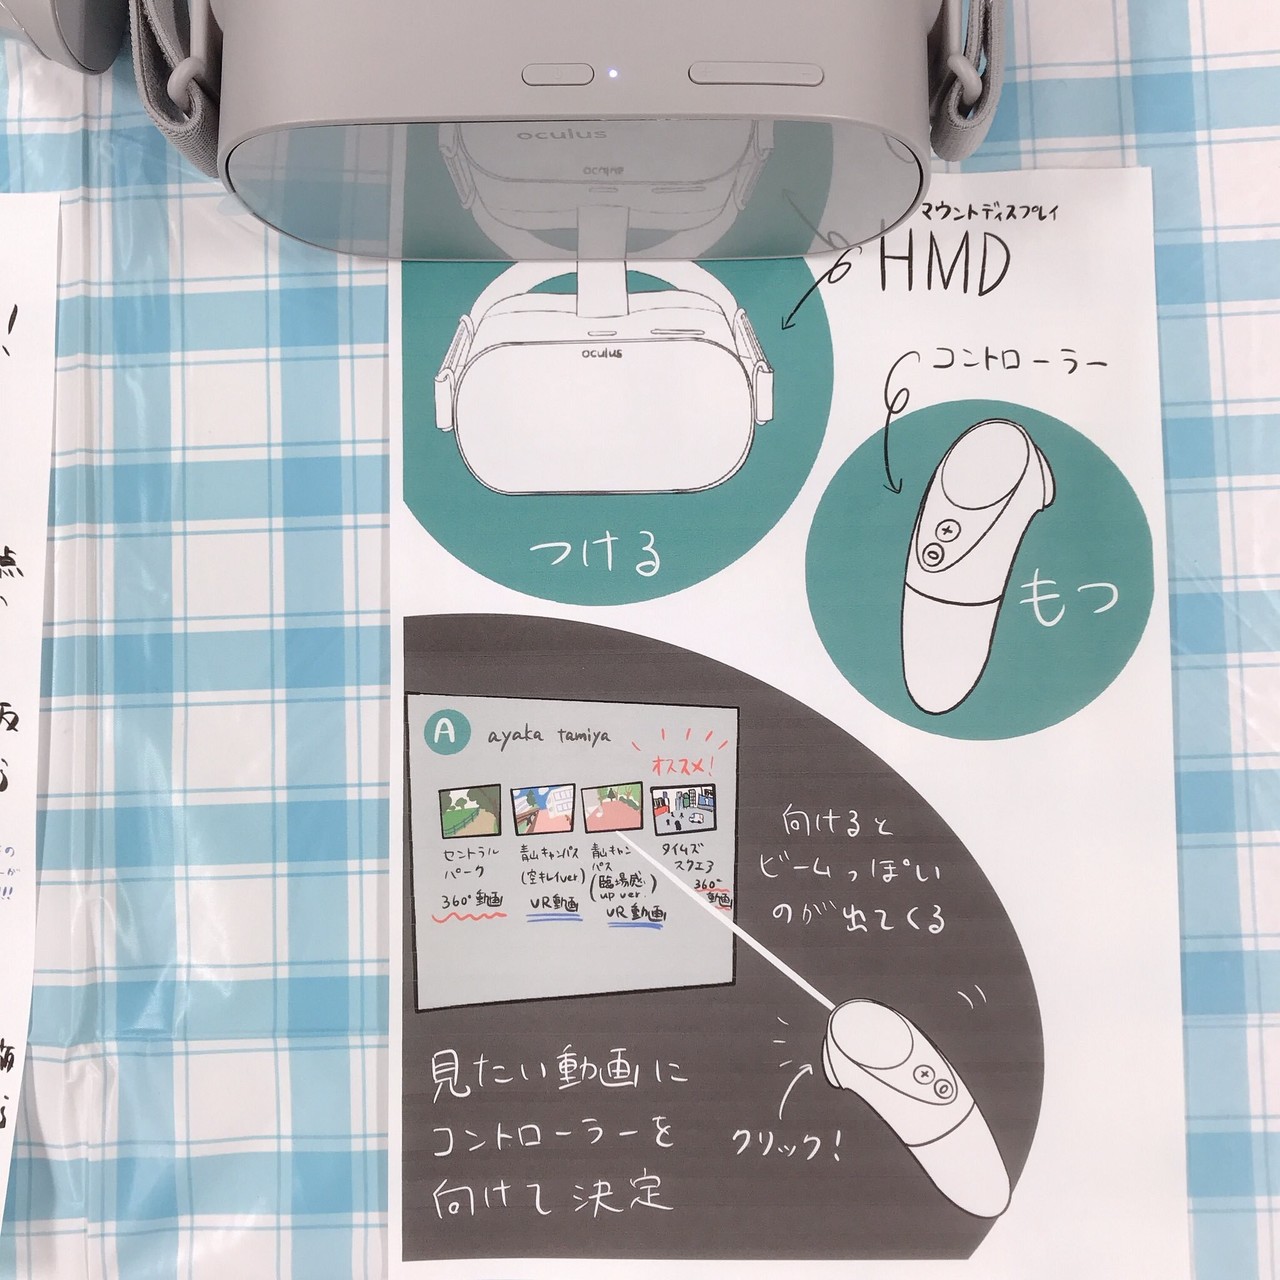 oculus
マウントディスプレイ
HMD
oculus
つける
コントローラー
もつ
A ayaka tamiya
オススメ!
セントラル
パーク
360°動画
青山キャンパス
(空キレイver)
VR動画
青山キャン
パス
(臨場感
up ver.)
VR動画
タイムズ
スクエア
360°
動画
向けると
ビームっぽい
のが出てくる
クリック!
見たい動画に
コントローラーを
向けて決定
!
点